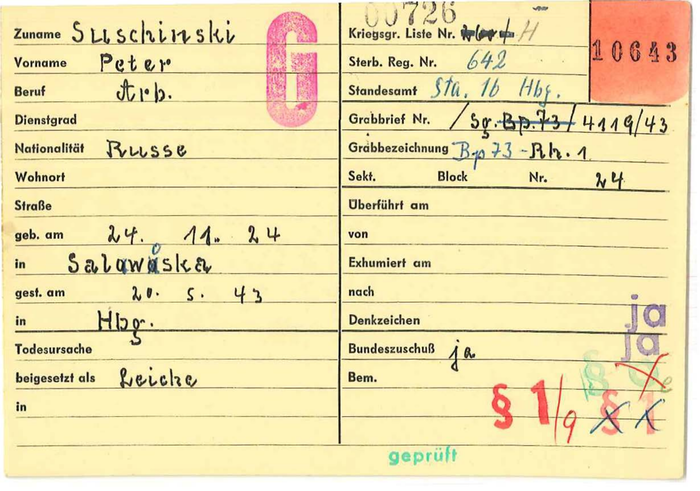 00726
Zuname Suschinski
G
Kriegsgr. Liste Nr. H
10643
Vorname Peter
Sterb. Reg. Nr. 642
Beruf Arb.
Standesamt Sta. 1b Hbg.
Dienstgrad
Grabbrief Nr. / Sg. Bp. 73 / 4119/43
Nationalität Russe
Grabbezeichnung Bp 73 - Rh. 1
Wohnort
Sekt. Block Nr. 24
Straße
Überführt am
geb. am 24. 11. 24
von
in Salowoska
Exhumiert am
gest. am 20. 5. 43
nach
in Hbg.
Denkzeichen ja
ja
Todesursache
Bundeszuschuß ja
beigesetzt als Leiche
Bem.
§ 1/9 § 1
in
geprüft